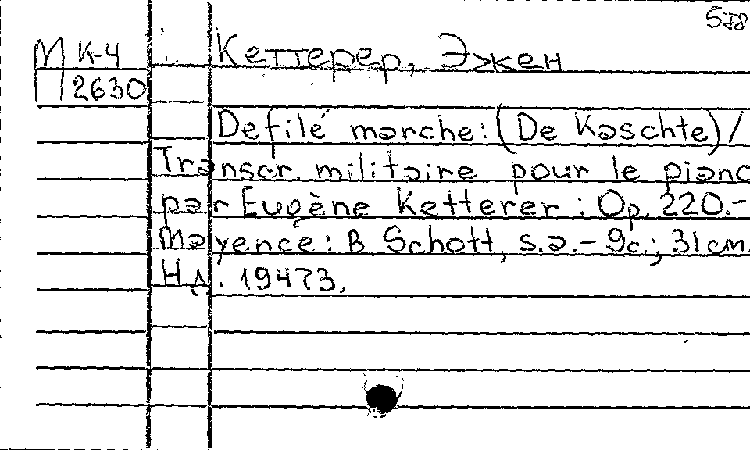 578
М К-4 Кеттерер, Эжен
П 2630
Defilé marche: (De Kaschte) /
Transcr. militaire pour le piano
par Eugène Ketterer : Op. 220.-
Mayence: B Schott, s.a.- 9c.; 31cm.
Н.д. 19473.